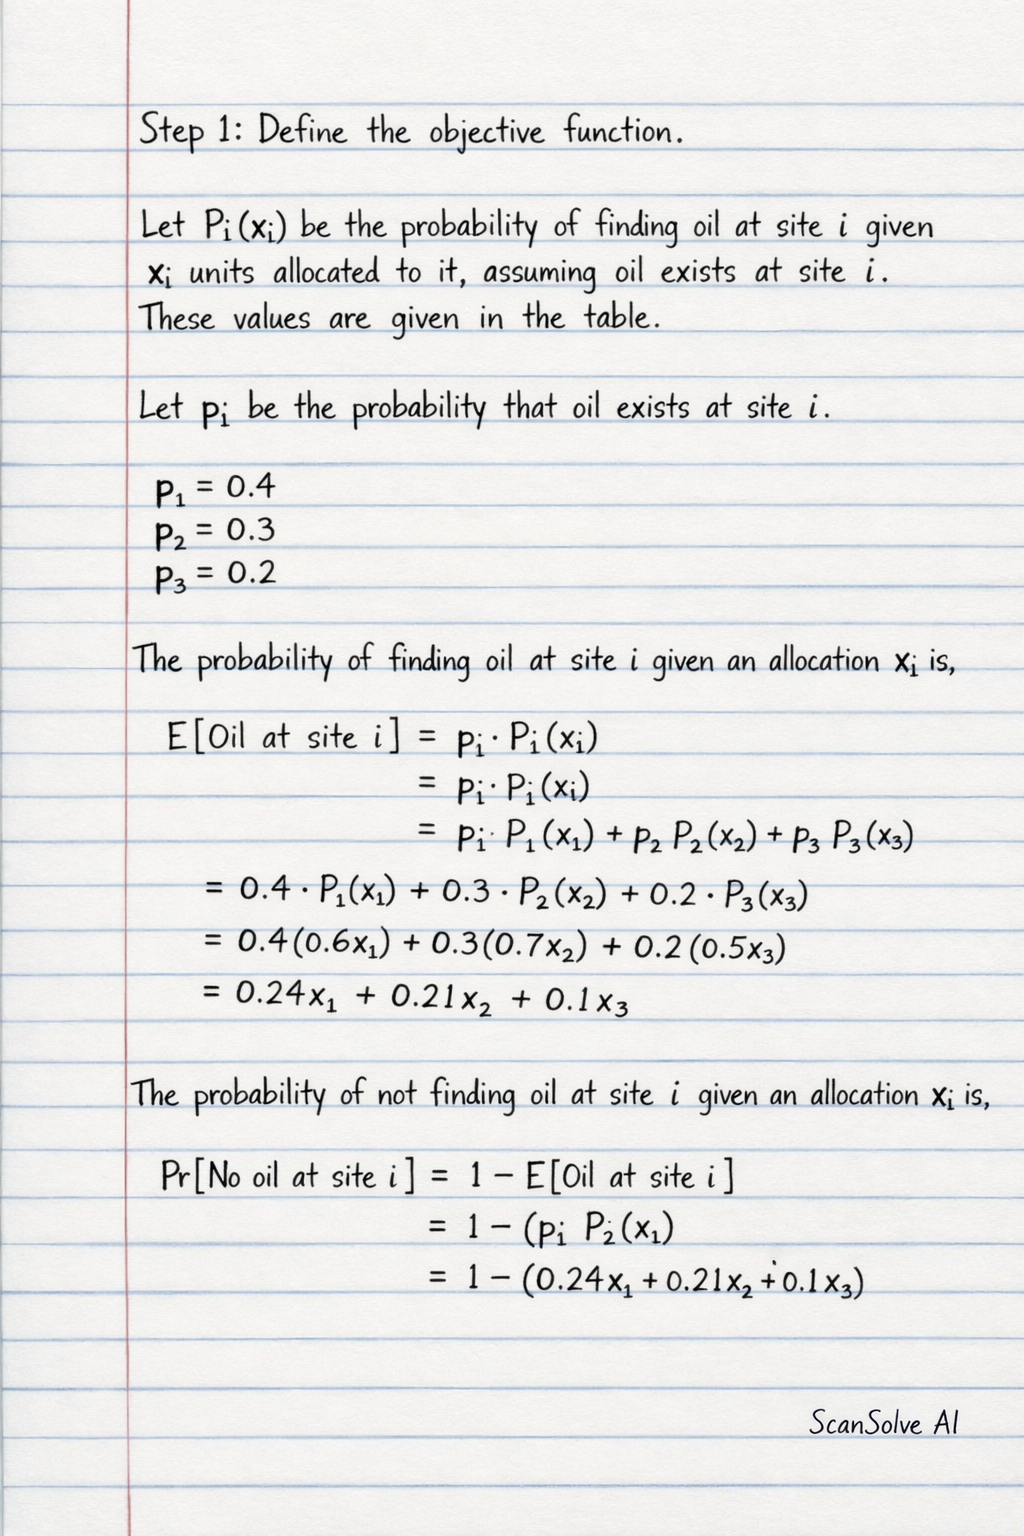 Step 1: Define the objective function.
Let Pᵢ(xᵢ) be the probability of finding oil at site i given
xᵢ units allocated to it, assuming oil exists at site i.
These values are given in the table.
Let pᵢ be the probability that oil exists at site i.
p₁ = 0.4
p₂ = 0.3
p₃ = 0.2
The probability of finding oil at site i given an allocation xᵢ is,
E[Oil at site i] = pᵢ · Pᵢ(xᵢ)
= pᵢ · Pᵢ(xᵢ)
= pᵢ · P₁(x₁) + p₂ P₂(x₂) + p₃ P₃(x₃)
= 0.4 · P₁(x₁) + 0.3 · P₂(x₂) + 0.2 · P₃(x₃)
= 0.4(0.6x₁) + 0.3(0.7x₂) + 0.2(0.5x₃)
= 0.24x₁ + 0.21x₂ + 0.1x₃
The probability of not finding oil at site i given an allocation xᵢ is,
Pr[No oil at site i] = 1 − E[Oil at site i]
= 1 − (pᵢ P₂(x₁)
= 1 − (0.24x₁ + 0.21x₂ + 0.1x₃)
ScanSolve AI